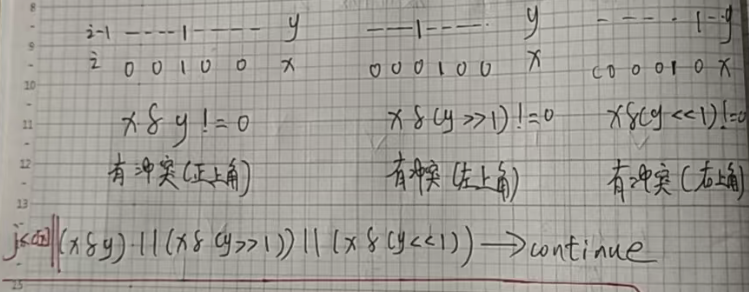 i-1 ----1---- y ---1---- y ----1-- y
i 0 0 1 0 0 x 0 0 0 1 0 0 x 0 0 0 1 0 x
x & y != 0 x & (y >> 1) != 0 x & (y << 1) != 0
有冲突(正上角) 有冲突(左上角) 有冲突(右上角)
(x & y) || (x & (y >> 1)) || (x & (y << 1)) → continue
8
9
10
11
12
13
15